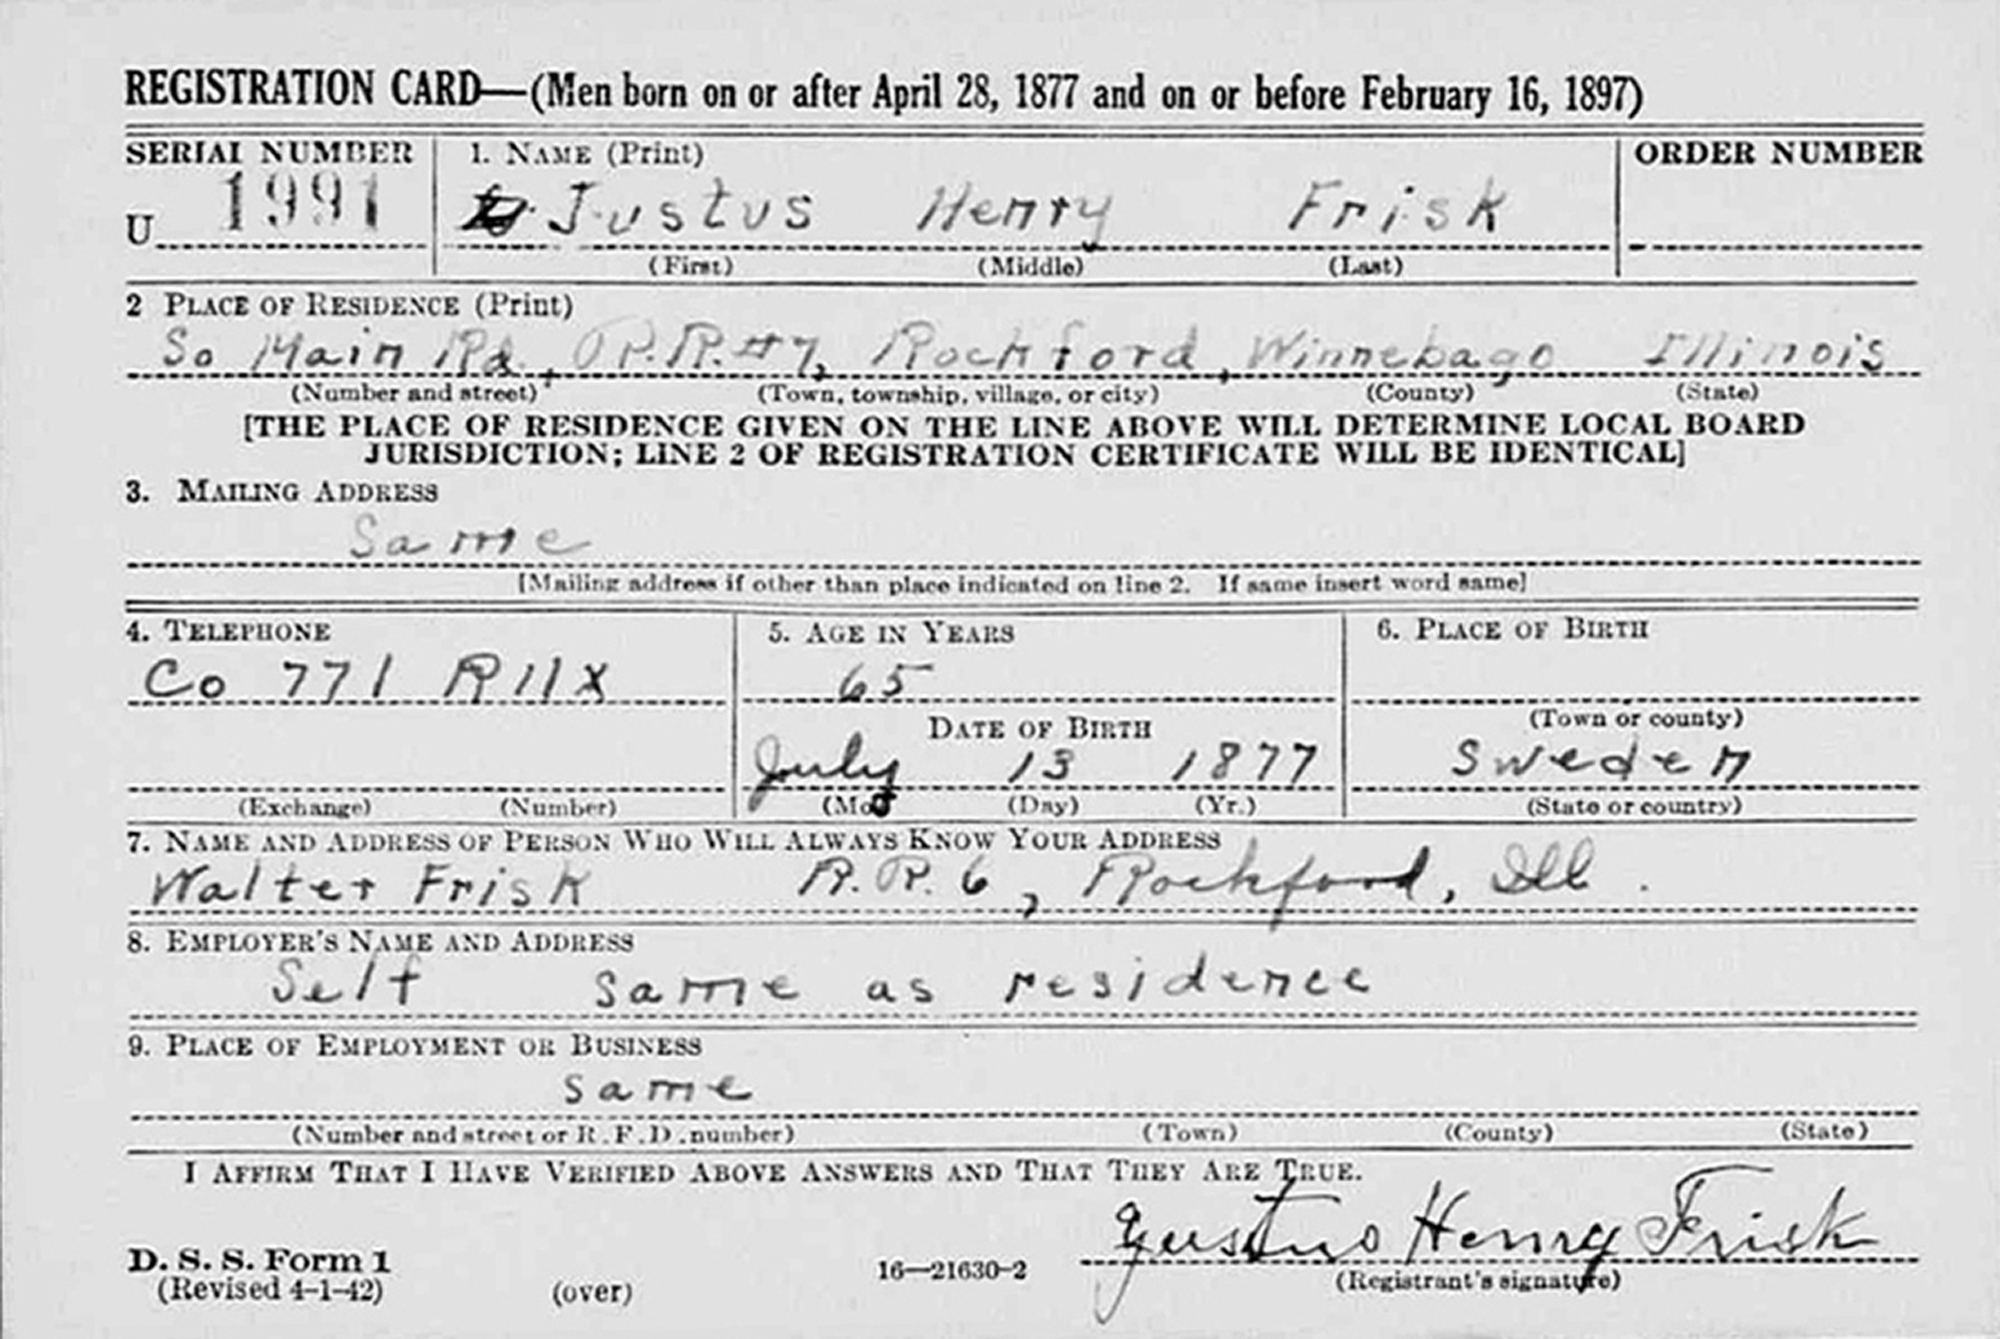 REGISTRATION CARD—(Men born on or after April 28, 1877 and on or before February 16, 1897)
SERIAL NUMBER 1. NAME (Print) ORDER NUMBER
U 1991 Justus Henry Frisk
(First) (Middle) (Last)
2 PLACE OF RESIDENCE (Print)
So Main Rd., R.R.#7, Rockford, Winnebago Illinois
(Number and street) (Town, township, village, or city) (County) (State)
[THE PLACE OF RESIDENCE GIVEN ON THE LINE ABOVE WILL DETERMINE LOCAL BOARD
JURISDICTION; LINE 2 OF REGISTRATION CERTIFICATE WILL BE IDENTICAL]
3. MAILING ADDRESS
Same
[Mailing address if other than place indicated on line 2. If same insert word same]
4. TELEPHONE 5. AGE IN YEARS 6. PLACE OF BIRTH
Co 771 R11X 65
DATE OF BIRTH (Town or county)
July 13 1877 Sweden
(Exchange) (Number) (Mo.) (Day) (Yr.) (State or country)
7. NAME AND ADDRESS OF PERSON WHO WILL ALWAYS KNOW YOUR ADDRESS
Walter Frisk R.R. 6, Rockford, Ill.
8. EMPLOYER'S NAME AND ADDRESS
Self same as residence
9. PLACE OF EMPLOYMENT OR BUSINESS
same
(Number and street or R.F.D. number) (Town) (County) (State)
I AFFIRM THAT I HAVE VERIFIED ABOVE ANSWERS AND THAT THEY ARE TRUE.
Justus Henry Frisk
D. S. S. Form 1
(Revised 4-1-42) (over) 16—21630-2 (Registrant's signature)